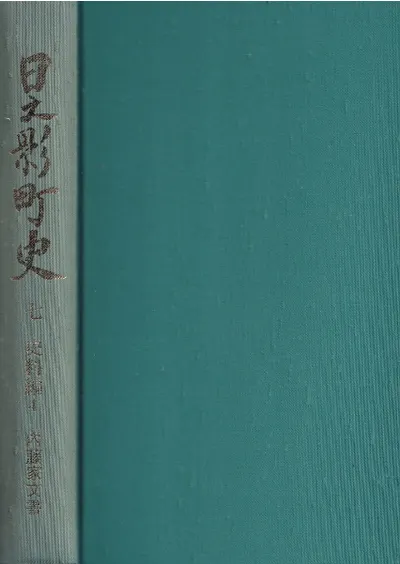 日之影町史
七
史料編1
内藤家文書